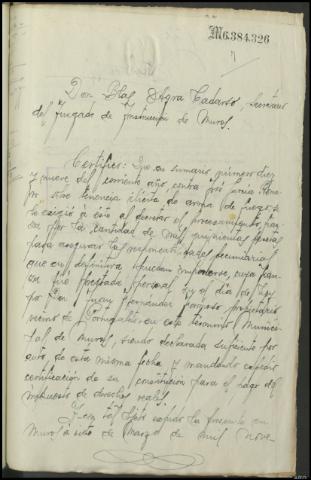 M6.384.326
Don Blas Agra Cadarso, Secretario
del Juzgado de Instrucción de Muros.
Certifico: Que en sumario, primero diez
y nueve del corriente año, contra José
sobre tenencia ilícita de arma de fuego, se
le exigió a éste al decretar el procesamiento,
por la cantidad de mil quinientas pesetas
para asegurar las responsabilidades pecuniarias
que en definitiva puedan imponerse, cuya fian
za fué prestada personal y el día de
por Don Juan Fernandez propietario
vecino de en este término Munici
pal de Muros, siendo declarada suficiente por
auto de esta misma fecha y mandando expedir
certificación de su constitución para el pago del
impuesto de derechos reales.
Y para que expido la presente en
Muros a siete de Marzo de mil nove